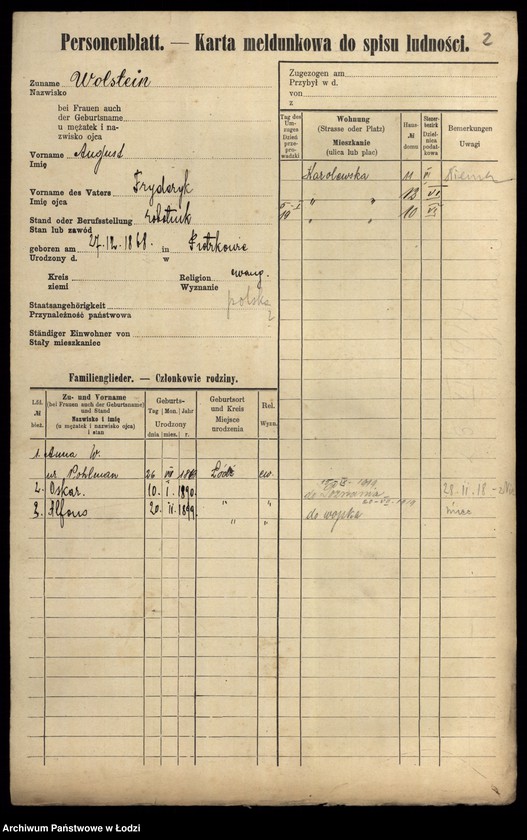 Personenblatt. — Karta meldunkowa do spisu ludności. 2
Zuname Wolstein
Nazwisko
bei Frauen auch
der Geburtsname
u mężatek i na-
zwisko ojca
Vorname August
Imię
Vorname des Vaters Fryderyk
Imię ojca
Stand oder Berufsstellung robotnik
Stan lub zawód
geboren am 27-12-1868. in Piotrkowie
Urodzony d. w
Kreis
ziemi
Religion ewang.
Wyznanie
Staatsangehörigkeit polska
Przynależność państwowa
Ständiger Einwohner von
Stały mieszkaniec
Zugezogen am
Przybył w d.
von
z
Tag des Um-zuges Dzień prze-prowadzki
Wohnung (Strasse oder Platz) Mieszkanie (ulica lub plac)
Haus-№ domu
Steuer-bezirk Dziel-nica podat-kowa
Bemerkungen Uwagi
Karolewska 11 VI
" " 13 VI
5-I 19 " " 10 VI
Familienglieder. — Członkowie rodziny.
Lfd. № bież.
Zu- und Vorname (bei Frauen auch der Geburtsname) und Stand Nazwisko i imię (u mężatek i nazwisko ojca) i stan
Geburts- Tag Mon. Jahr Urodzony dnia mies. r.
Geburtsort und Kreis Miejsce urodzenia
Rel. Wyzn.
1. Anna W.
ur Pohlman 26 VII Łódź ew.
2. Oskar. 10. I. 1890. " "
3. Alfons 20. II. 1899. " " do wojska
28.II.18
Archiwum Państwowe w Łodzi